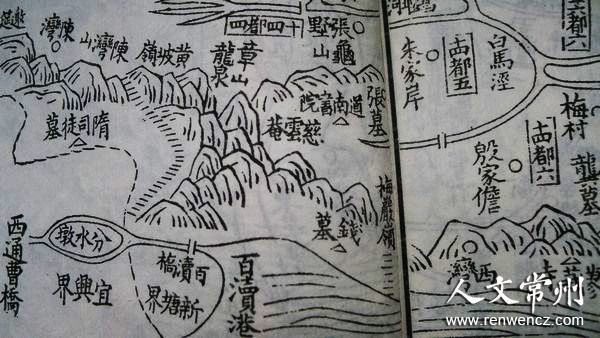 陳灣
陳灣山
黃坡嶺
龍泉
章山
四都四十
張野山
龜
張墓
道南書院
慈雲菴
隋司徒墓
錢墓
梅巖嶺
西通曹橋
分水墩
宜興界
百瀆橋
新塘界
百瀆港
朱家岸
古都五
白馬涇
古都六
梅村
龔墓
古都六
殷家儋
西灣
人文常州
www.renwencz.com